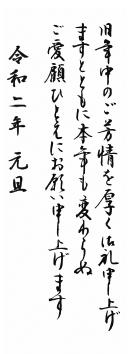 旧年中のご芳情を厚く御礼申し上げ
ますとともに本年も変わらぬ
ご愛顧ひとえにお願い申し上げます
令和二年 元旦